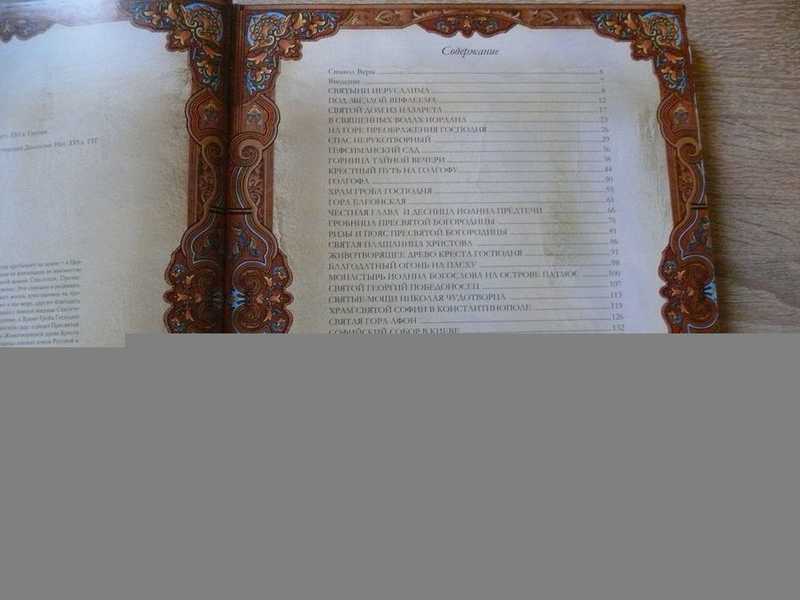 Содержание
Символ Веры 6
Введение 7
СВЯТЫНИ ИЕРУСАЛИМА 8
ПОД ЗВЕЗДОЙ ВИФЛЕЕМА 12
СВЯТОЙ ДОМ ИЗ НАЗАРЕТА 17
В СВЯЩЕННЫХ ВОДАХ ИОРДАНА 23
НА ГОРЕ ПРЕОБРАЖЕНИЯ ГОСПОДНЯ 26
СПАС НЕРУКОТВОРНЫЙ 29
ГЕФСИМАНСКИЙ САД 36
ГОРНИЦА ТАЙНОЙ ВЕЧЕРИ 38
КРЕСТНЫЙ ПУТЬ НА ГОЛГОФУ 44
ГОЛГОФА 50
ХРАМ ГРОБА ГОСПОДНЯ 55
ГОРА ЕЛЕОНСКАЯ 61
ЧЕСТНАЯ ГЛАВА И ДЕСНИЦА ИОАННА ПРЕДТЕЧИ 66
ГРОБНИЦА ПРЕСВЯТОЙ БОГОРОДИЦЫ 76
РИЗЫ И ПОЯС ПРЕСВЯТОЙ БОГОРОДИЦЫ 81
СВЯТАЯ ПЛАЩАНИЦА ХРИСТОВА 86
ЖИВОТВОРЯЩЕЕ ДРЕВО КРЕСТА ГОСПОДНЯ 91
БЛАГОДАТНЫЙ ОГОНЬ НА ПАСХУ 98
МОНАСТЫРЬ ИОАННА БОГОСЛОВА НА ОСТРОВЕ ПАТМОС 100
СВЯТОЙ ГЕОРГИЙ ПОБЕДОНОСЕЦ 107
СВЯТЫЕ МОЩИ НИКОЛАЯ ЧУДОТВОРЦА 113
ХРАМ СВЯТОЙ СОФИИ В КОНСТАНТИНОПОЛЕ 119
СВЯТАЯ ГОРА АФОН 126
СОФИЙСКИЙ СОБОР В КИЕВЕ 132